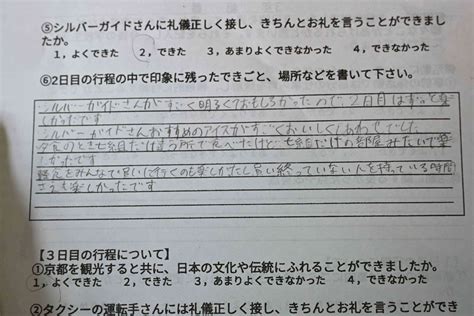 ⑤シルバーガイドさんに礼儀正しく接し、きちんとお礼を言うことができまし
たか。
1，よくできた　2，できた　3，あまりよくできなかった　4，できなかった
⑥2日目の行程の中で印象に残ったできごと、場所などを書いて下さい。
シルバーガイドさんがすごく明るくておもしろかったので、2日目はずっと楽
しかったです
シルバーガイドさんおすすめのアイスがすごくおいしくしあわせでした
夕食のとき七組だけ違う所で食べたけど七組だけの部屋みたいで楽
しかったです
軽食をみんなで買いに行くのも楽しかたし買い終っていない人を待っている時間
さえも楽しかったです
【3日目の行程について】
①京都を観光すると共に、日本の文化や伝統にふれることができましたか。
1，よくできた　2，できた　3，あまりよくできなかった　4，できなかった
②タクシーの運転手さんには礼儀正しく接し、きちんとお礼を言うことができ